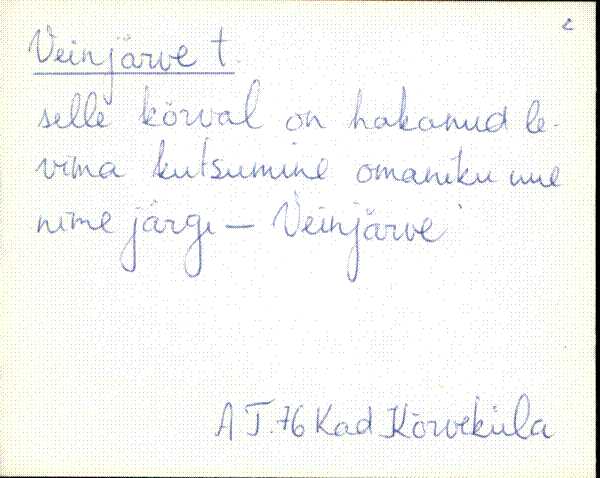 2
Veinjärve t.
selle kõrval on hakanud le-
vima kutsumine omaniku uue
nime järgi – Veinjärve
A T. 76 Kad Kõrveküla